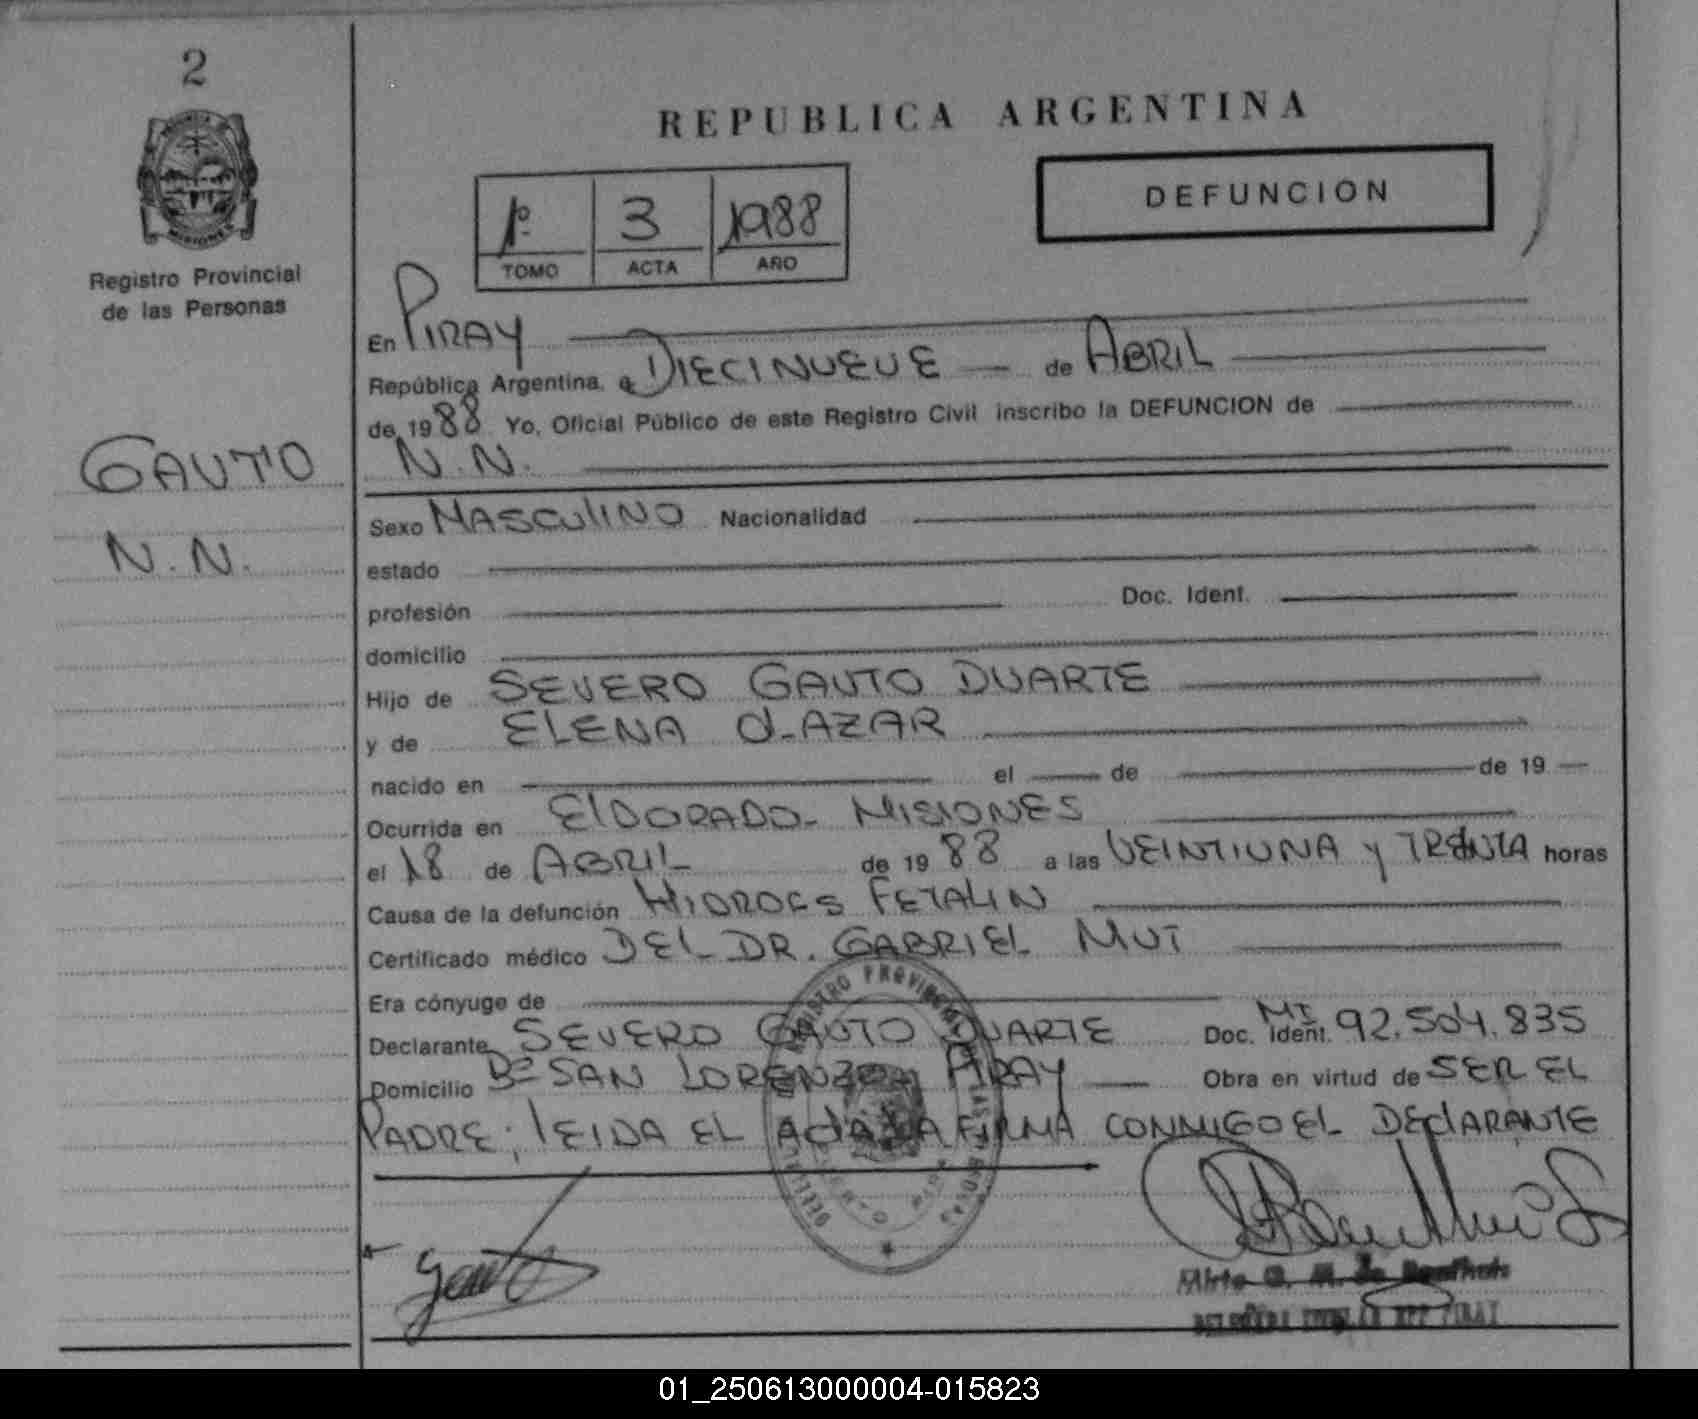 2
REPUBLICA ARGENTINA
DEFUNCION
1º 3 1988
TOMO ACTA AÑO
Registro Provincial
de las Personas
En PIRAY
República Argentina, a DIECINUEVE de ABRIL
de 1988 Yo, Oficial Público de este Registro Civil inscribo la DEFUNCION de
GAUTO
N.N.
N.N.
Sexo MASCULINO Nacionalidad
estado
profesión Doc. Ident.
domicilio
Hijo de SEVERO GAUTO DUARTE
y de ELENA OLAZAR
nacido en el de de 19
Ocurrida en ELDORADO- MISIONES
el 18 de ABRIL de 1988 a las VEINTIUNA y TREINTA horas
Causa de la defunción FETALIN
Certificado médico DEL DR. GABRIEL MUT
Era cónyuge de
Declarante SEVERO GAUTO DUARTE Doc. Ident. MI 92.504.835
Domicilio Bº SAN LORENZO PIRAY Obra en virtud de SER EL
PADRE; LEIDA EL ACTA LA FIRMA CONMIGO EL DECLARANTE
REGISTRO PROVINCIAL DE LAS PERSONAS
01_250613000004-015823